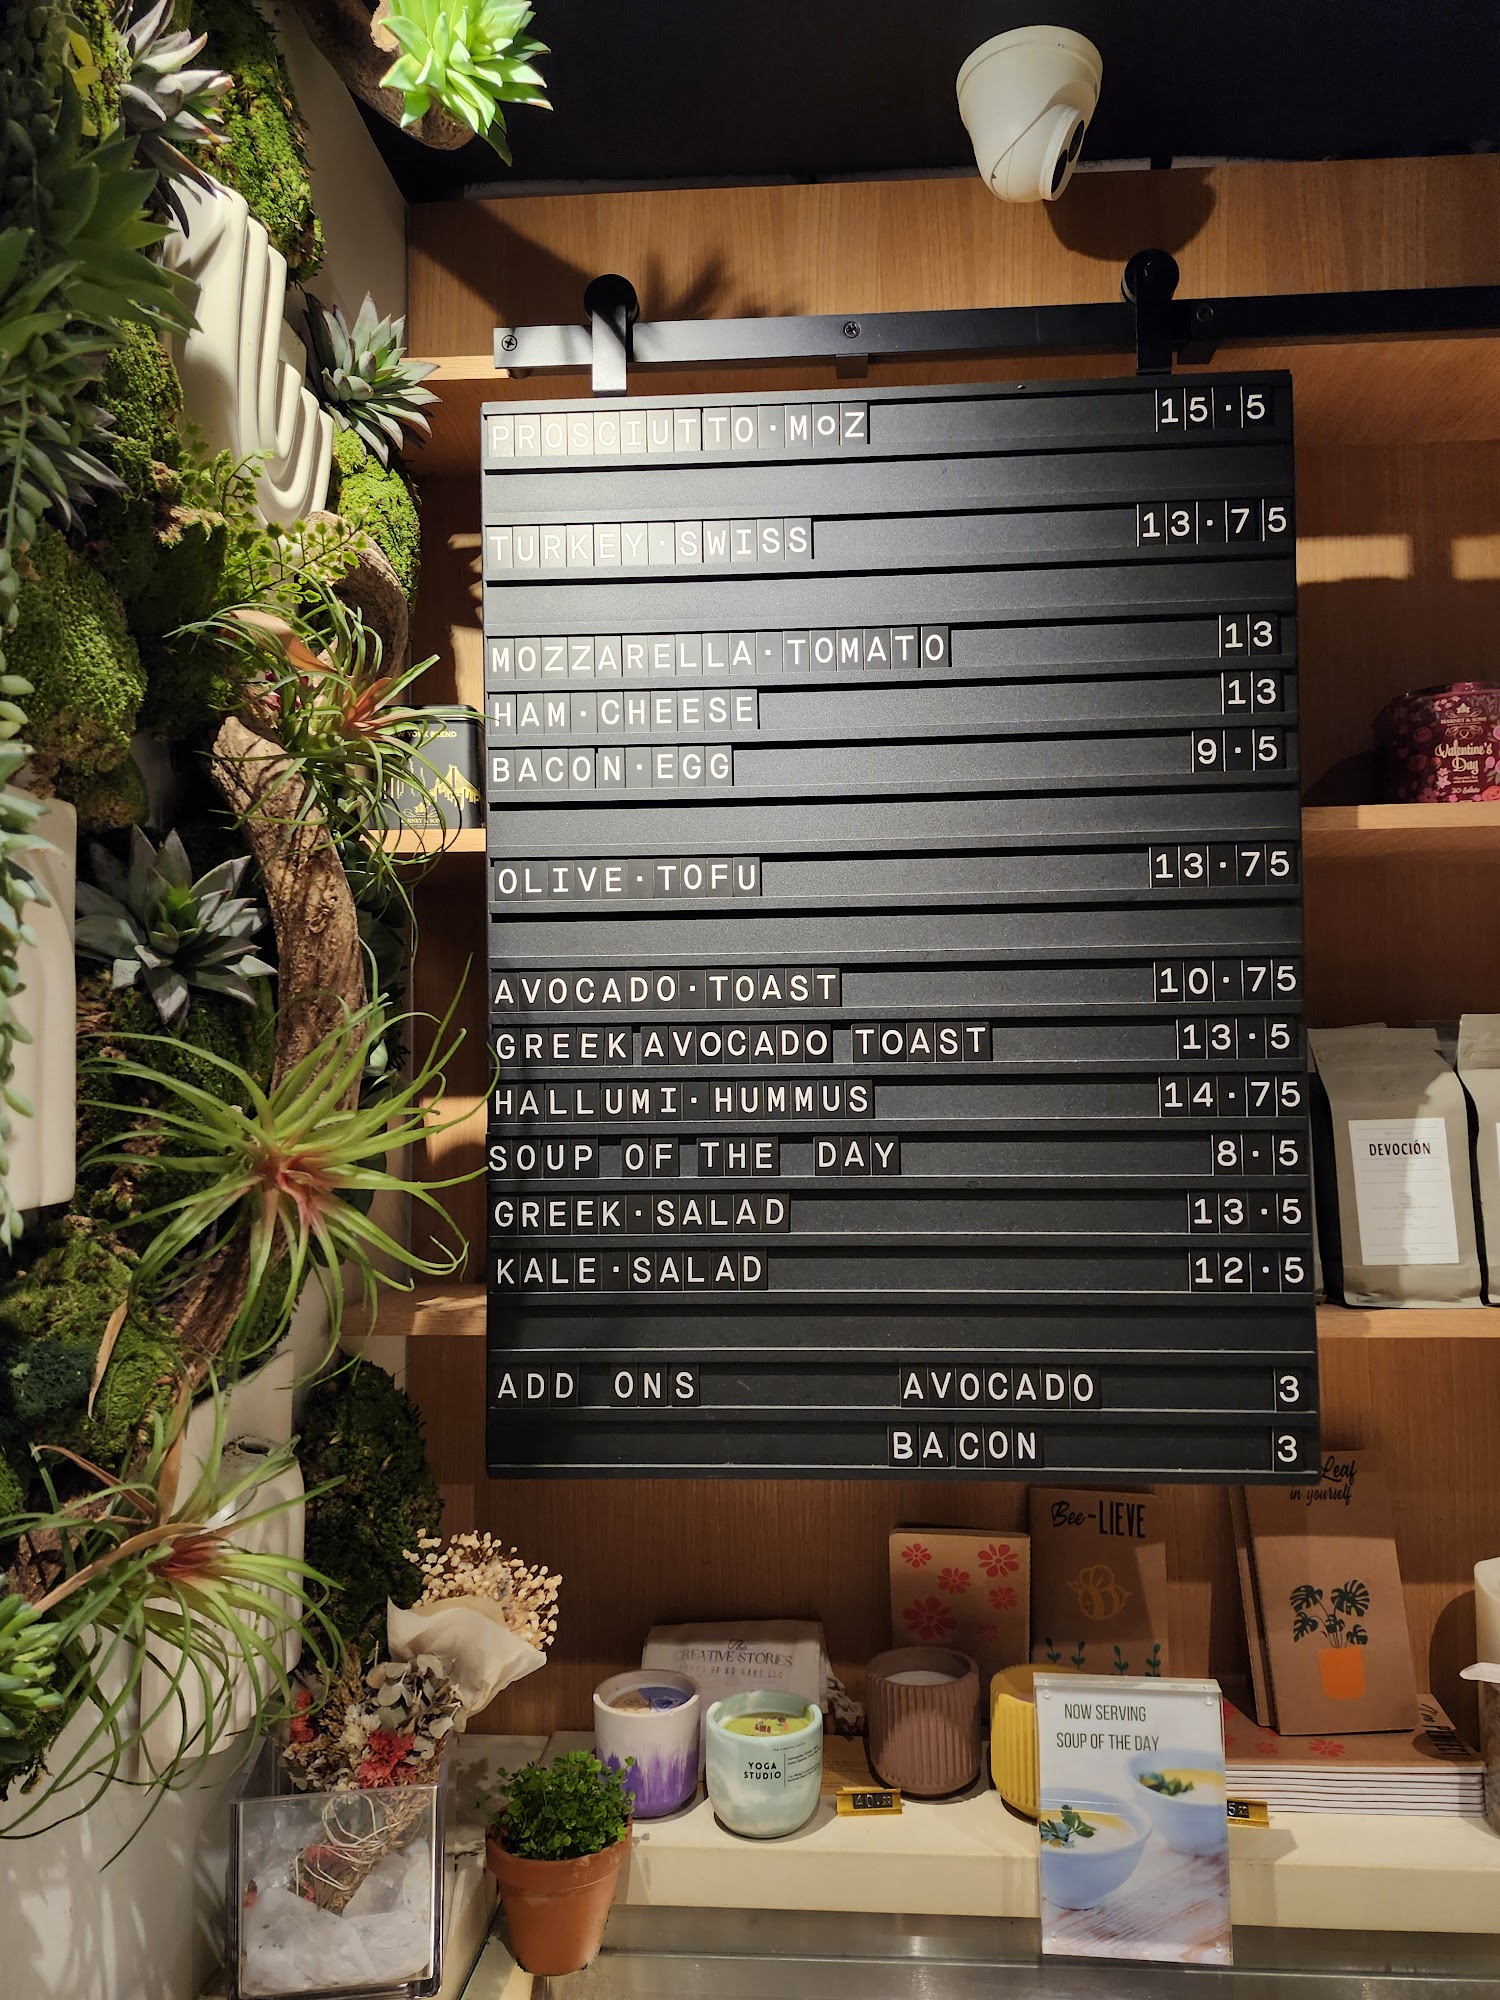 PROSCIUTTO·MOZ 15·5
TURKEY·SWISS 13·75
MOZZARELLA·TOMATO 13
HAM·CHEESE 13
BACON·EGG 9·5
OLIVE·TOFU 13·75
AVOCADO·TOAST 10·75
GREEK AVOCADO TOAST 13·5
HALLUMI·HUMMUS 14·75
SOUP OF THE DAY 8·5
GREEK·SALAD 13·5
KALE·SALAD 12·5
ADD ONS AVOCADO 3
BACON 3
YORK BLEND
HARNEY & SONS
Valentine's
Day
DEVOCIÓN
Leaf
in yourself
Bee-LIEVE
The
CREATIVE STORIES
YOGA
STUDIO
NOW SERVING
SOUP OF THE DAY